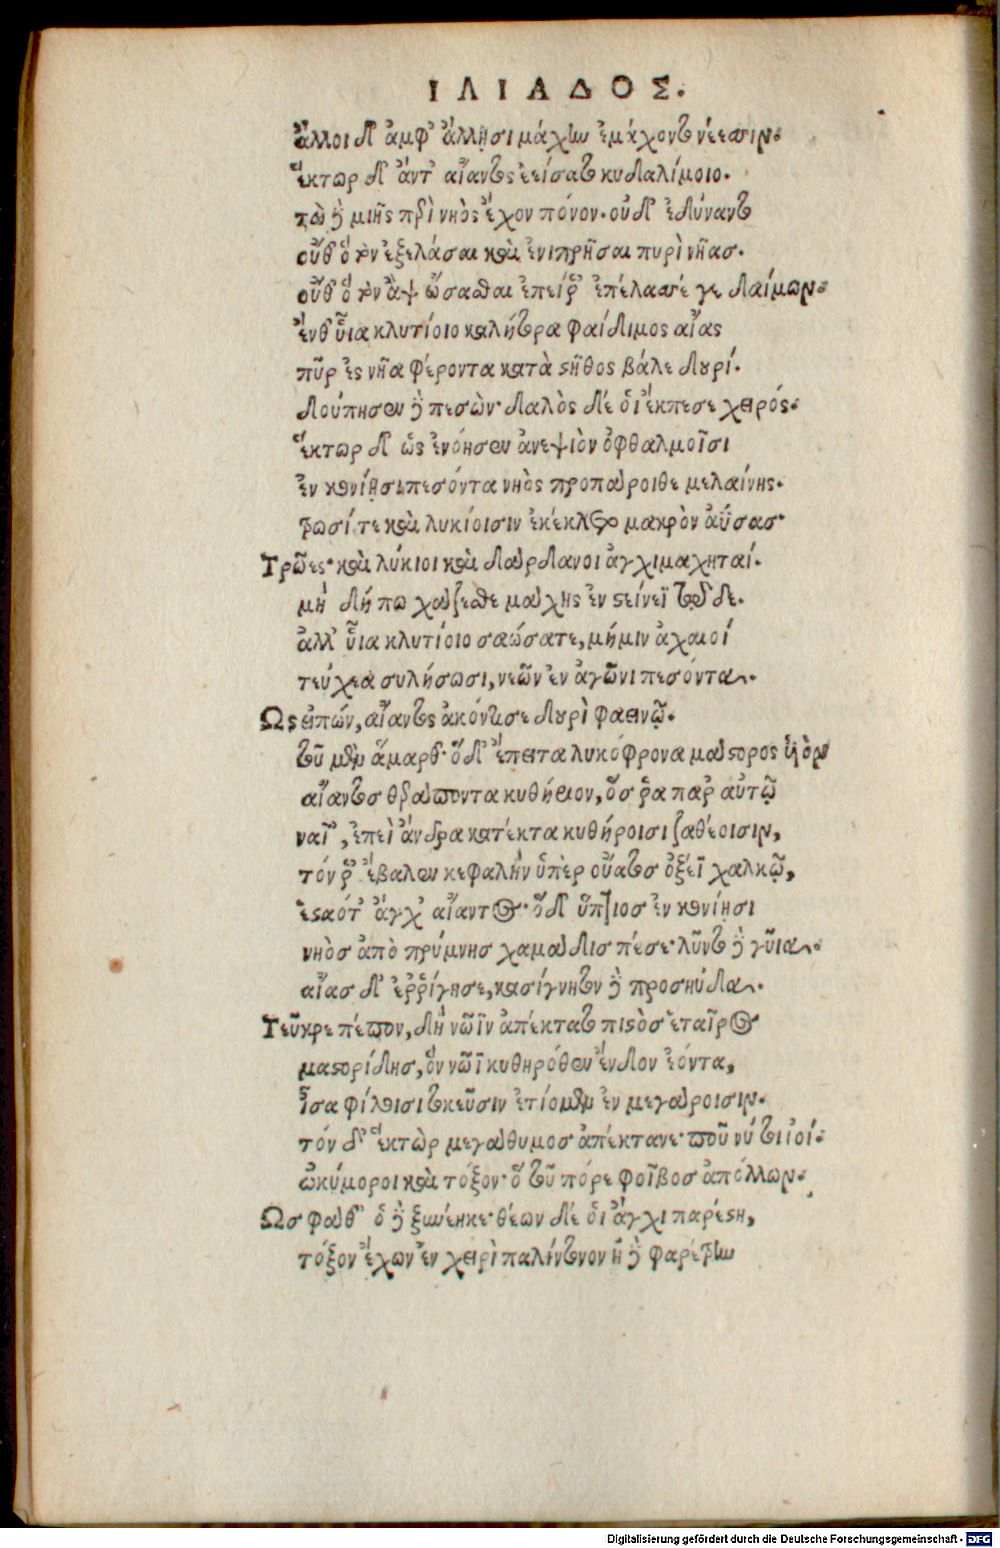 ΙΛΙΑΔΟΣ.
ἄλλοι δ' ἀμφ' ἄλλῃσι μάχην ἐμάχοντο νέεσσιν.
ἕκτωρ δ' ἄντ' αἴαντος ἐείσατο κυδαλίμοιο.
τὼ δὲ μιῆς περὶ νηὸς ἔχον πόνον. οὐδ' ἐδύναντο
οὔθ' ὁ τὸν ἐξελάσαι καὶ ἐνιπρῆσαι πυρὶ νῆας.
οὔθ' ὁ τὸν ἂψ ὤσασθαι ἐπεί ῥ' ἐπέλασσέ γε δαίμων.
ἔνθ' υἷα κλυτίοιο καλήτορα φαίδιμος αἴας
πῦρ ἐς νῆα φέροντα κατὰ στῆθος βάλε δουρί.
δούπησεν δὲ πεσὼν· δαλὸς δέ οἱ ἔκπεσε χειρός.
ἕκτωρ δ' ὡς ἐνόησεν ἀνεψιὸν ὀφθαλμοῖσι
ἐν κονίῃσι πεσόντα νηὸς προπάροιθε μελαίνης.
τρωσί τε καὶ λυκίοισιν ἐκέκλετο μακρὸν ἀΰσας·
Τρῶες· καὶ λύκιοι καὶ δάρδανοι ἀγχιμαχηταί.
μὴ δή πω χάζεσθε μάχης ἐν στείνεϊ τῷδε.
ἀλλ' υἷα κλυτίοιο σαώσατε, μή μιν ἀχαιοί
τεύχεα συλήσωσι, νεῶν ἐν ἀγῶνι πεσόντα.
Ως εἰπών, αἴαντος ἀκόντισε δουρὶ φαεινῷ.
τοῦ μὲν ἅμαρθ'· ὅ δ' ἔπειτα λυκόφρονα μάστορος υἱὸν
αἴαντος θεράποντα κυθήριον, ὅς ῥα παρ' αὐτῷ
ναῖ', ἐπεὶ ἄνδρα κατέκτα κυθήροισι ζαθέοισιν,
τόν ῥ' ἔβαλεν κεφαλὴν ὑπὲρ οὔατος ὀξέϊ χαλκῷ,
ἑσταότ' ἄγχ' αἴαντος· ὅ δ' ὕπτιος ἐν κονίῃσι
νηὸς ἀπὸ πρύμνης χαμάδις πέσε· λῦντο δὲ γῦια.
αἴας δ' ἐῤῥίγησε, κασίγνητον δὲ προσηύδα.
Τεῦκρε πέπον, δὴ νῶϊν ἀπέκτατο πιστὸς ἑταῖρος
μαστορίδης, ὃν νῶϊ κυθηρόθεν ἔνδον ἐόντα,
ἶσα φίλοισι τοκεῦσιν ἐτίομεν ἐν μεγάροισιν.
τόν δ' ἕκτωρ μεγάθυμος ἀπέκτανε· ποῦ νύ τοι ἰοί.
ὠκύμοροι καὶ τόξον· ὅ τοῦ πόρε φοῖβος ἀπόλλων.
Ως φάθ' ὁ δὲ ξυνέηκε· θέων δέ οἱ ἄγχι παρέστη,
τόξον ἔχων ἐν χειρὶ παλίντονον ἠ δὲ φαρέτρην
Digitalisierung gefördert durch die Deutsche Forschungsgemeinschaft - DFG